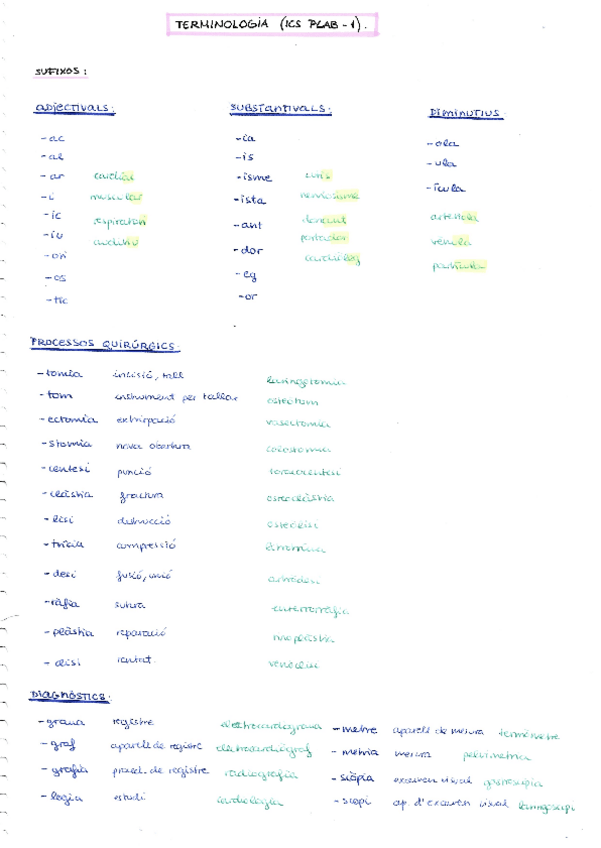 TERMINOLOGIA (ICS PLAB - 1).
SUFIXOS:
ADJECTIVALS:
-ac
-al
-ar
-i
-ic
-iu
-ori
-os
-tic
muscular
auditiu
SUBSTANTIVALS:
-ia
-is
-isme
-ista
-ant
-dor
-eg
-or
portador
DIMINUTIUS
-ola
-ula
-ícula
arteriola
vénula
partícula
PROCESSOS QUIRÚRGICS:
-tomia incisió, tall laringotomia
-tom instrument per tallar osteòtom
-ectomia extirpació vasectomia
-stomia nova obertura colostomia
-centesi punció toracocentesi
-clàstia fractura osteoclàstia
-lisi destrucció
compressió
-desi fusió, unió
-ràfia sutura enterorràfia
-plàstia reparació rinoplàstia
-clisi
DIAGNÒSTICS:
-grama registre electrocardiograma -metre aparell de mesura termòmetre
-graf aparell de registre electrocardiògraf -metria mesura pelvimetria
-grafia proced. de registre radiografia -scòpia examen visual
-logia estudi cardiologia -scopi ap. d'examen visual